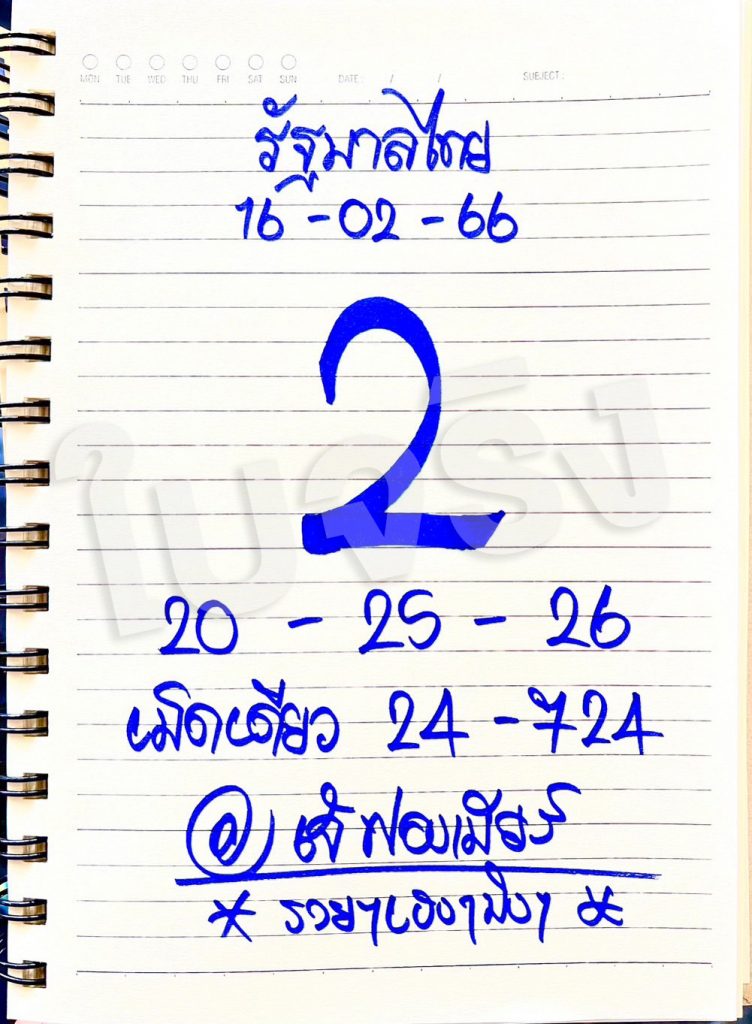 MON TUE WED THU FRI SAT SUN DATE: / / SUBJECT:
รัฐบาลไทย
16 - 02 - 66
2
ใบจริง
20 - 25 - 26
เม็ดเดียว 24 - 724
เจ๊ฟองเบียร์
* รวยๆเฮงๆปังๆ *